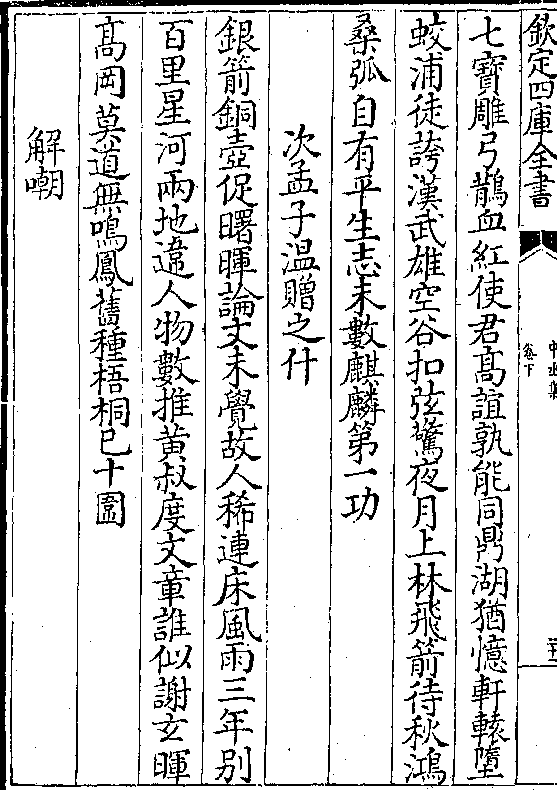 欽定四庫全書
卷下
七寶雕弓鵲血紅使君髙誼孰能同鼎湖猶憶軒轅墮
蛟浦徒誇漢武雄空谷扣弦驚夜月上林飛箭待秋鴻
桑弧自有平生志未數麒麟第一功
次孟子温贈之什
銀箭銅壺促曙暉論文未覺故人稀連床風雨三年别
百里星河兩地違人物數推黄叔度文章誰似謝玄暉
髙岡莫道無鳴鳳舊種梧桐已十圍
解嘲